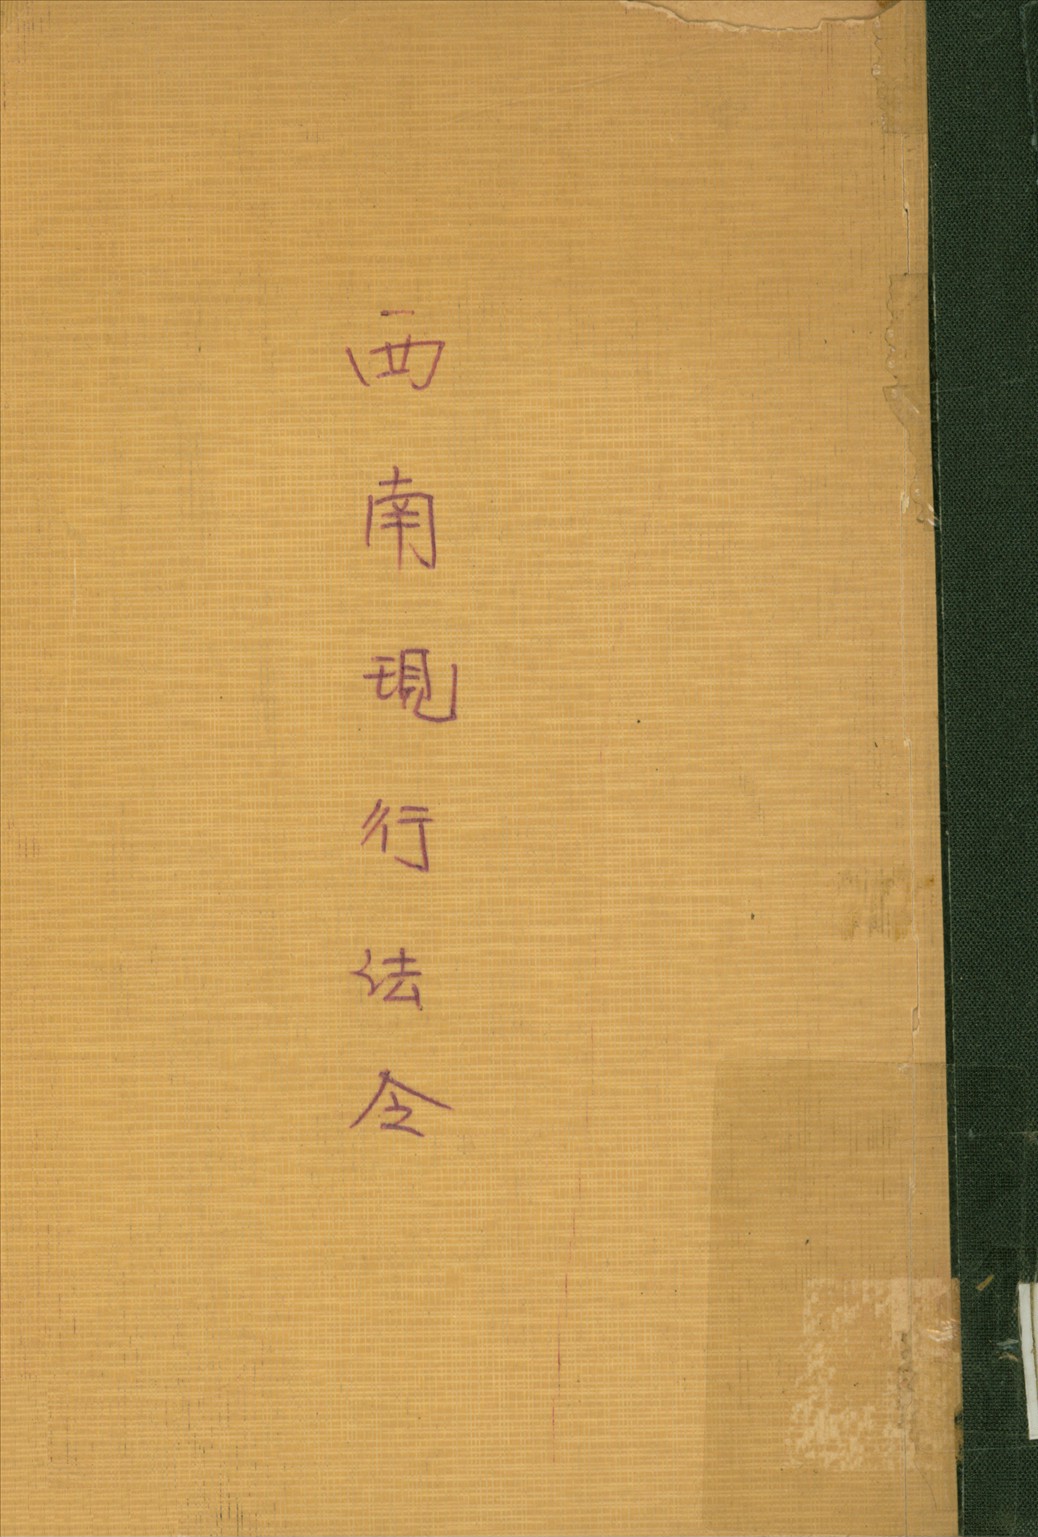 西南現行法令